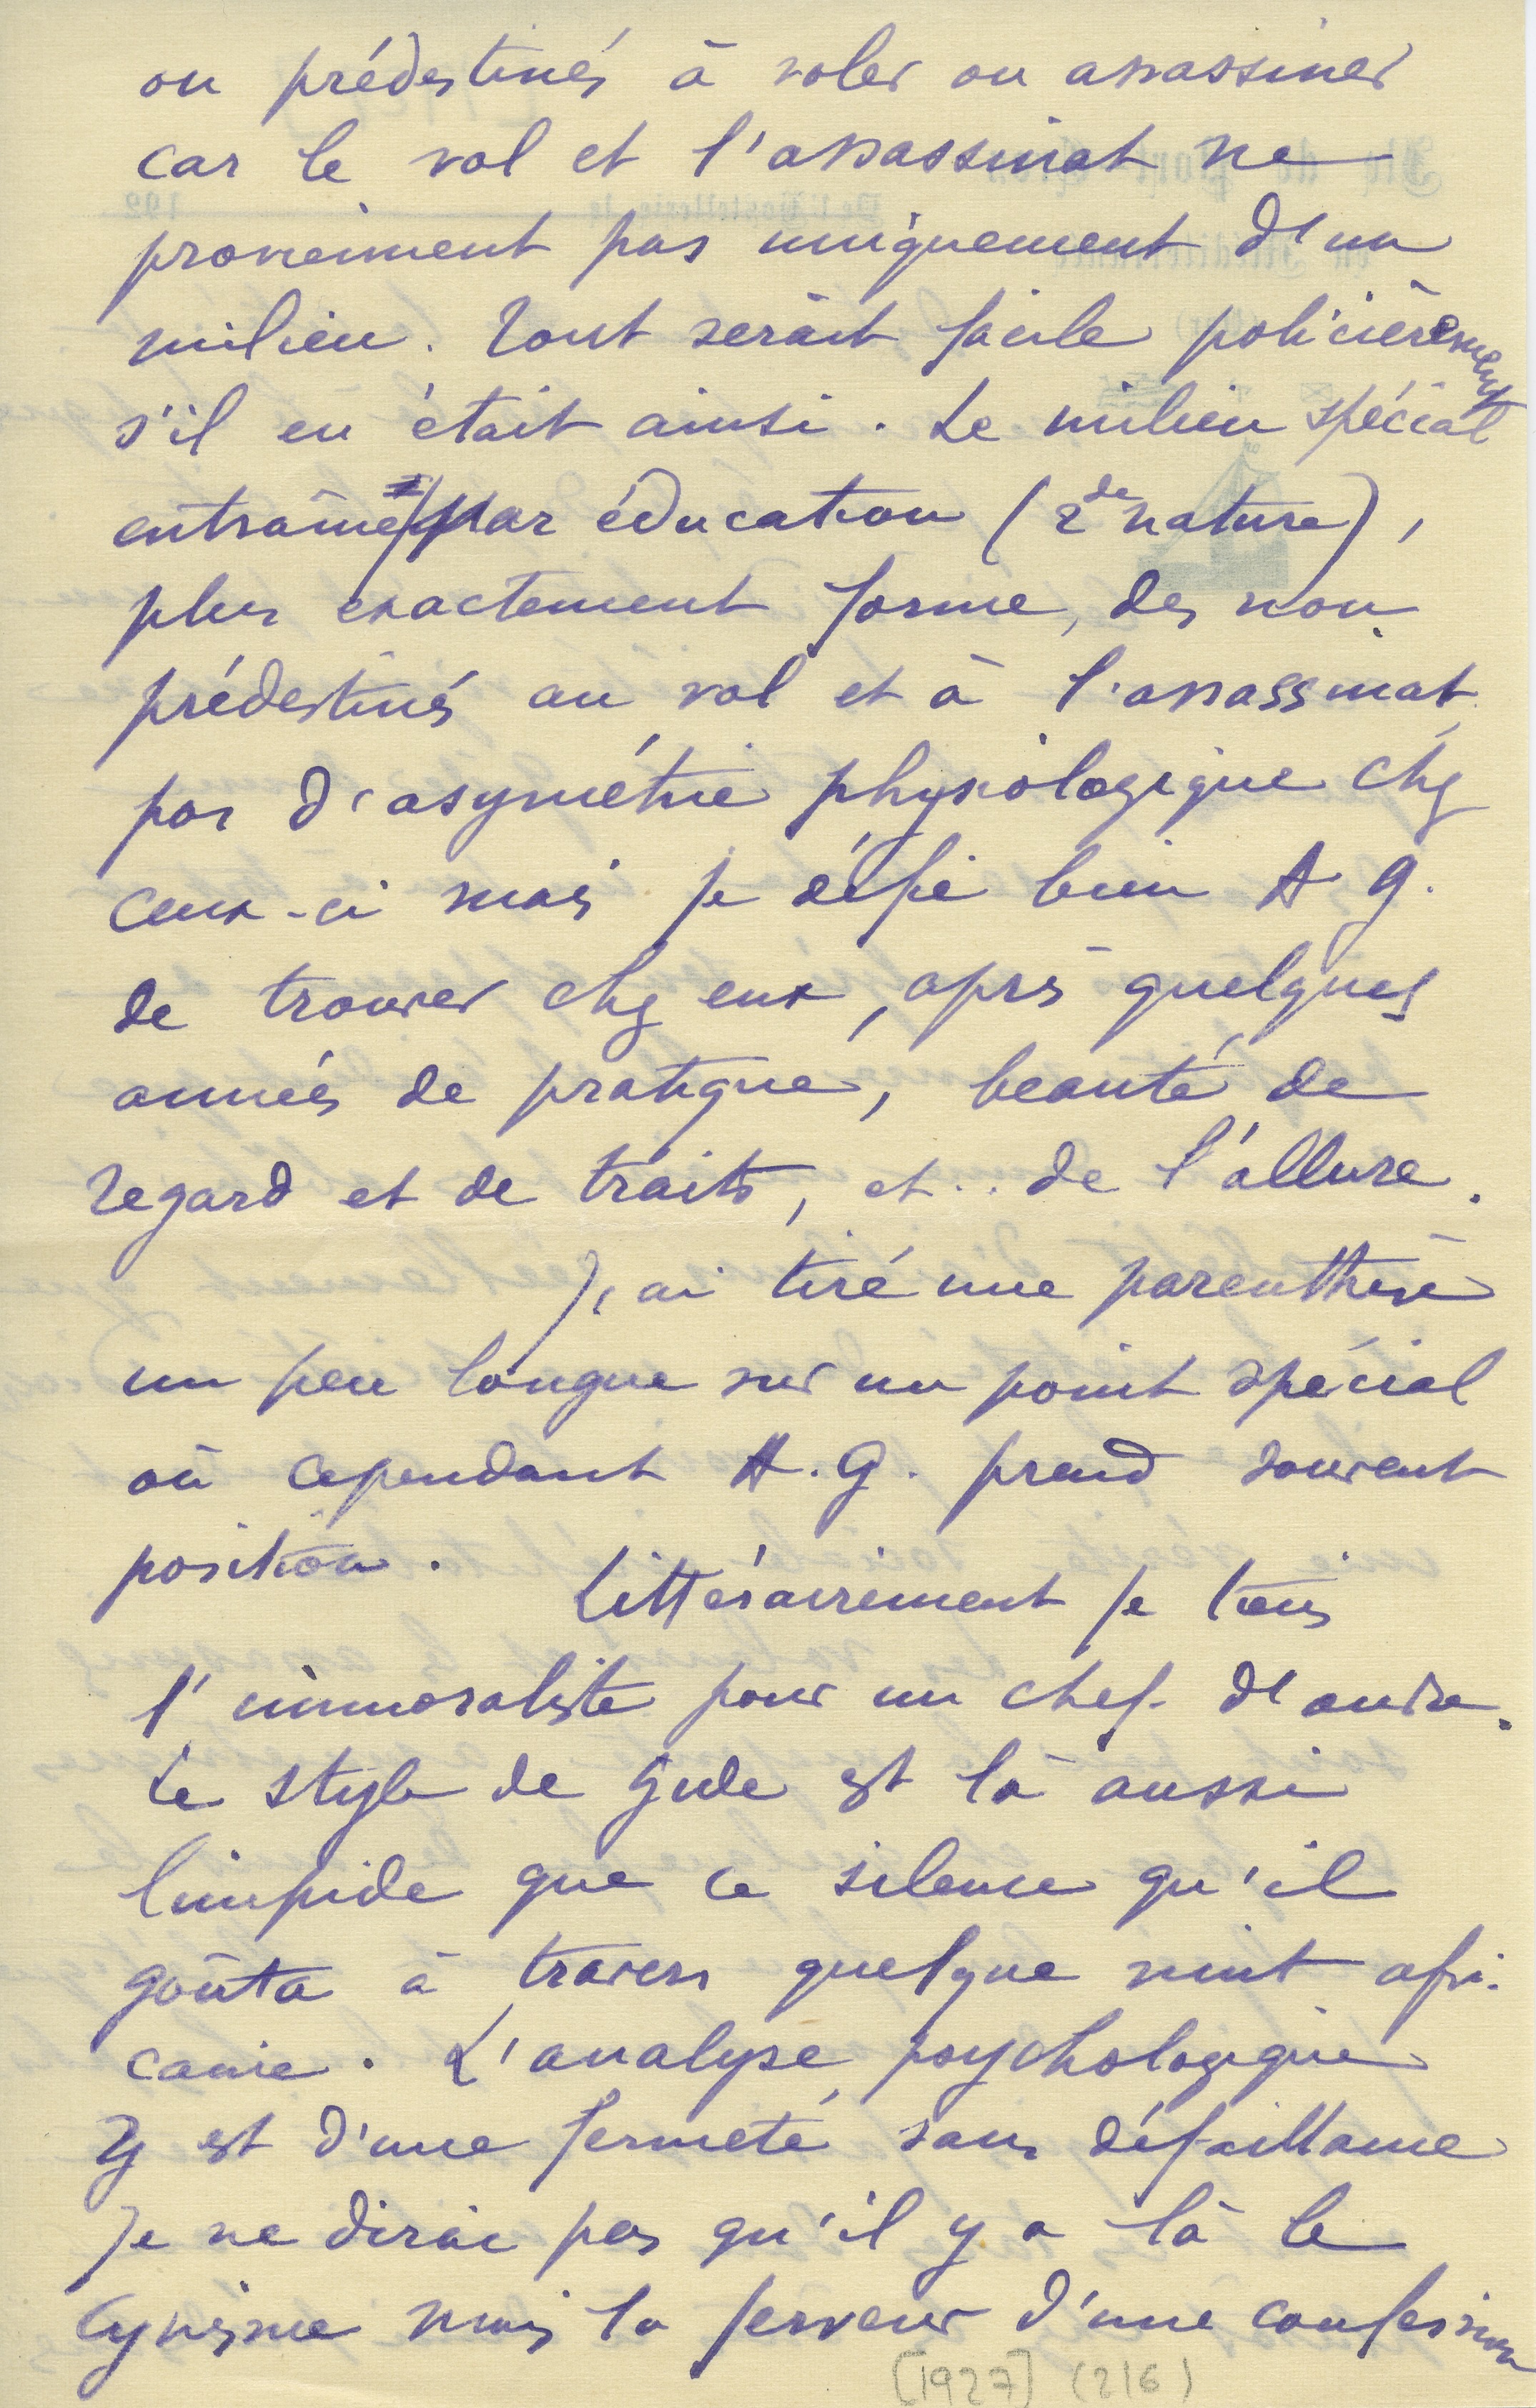 ou prédestinés à voler ou assassiner
car le vol et l'assassinat ne
proviennent pas uniquement d'un
milieu. Tout serait facile policièrement
s'il en était ainsi. Le milieu spécial
entraîne par éducation (2de nature),
plus exactement forme, des non
prédestinés au vol et à l'assassinat
pas d'asymétrie physiologique chez
ceux-ci mais je défie bien A G.
de trouver chez eux, après quelques
années de pratique, beauté de
regard et de traits, et.. de l'allure.
J'ai tiré une parenthèse
un peu longue sur un point spécial
où cependant A. G. prend souvent
position.
Littérairement je tiens
l'immoraliste pour un chef d'œuvre.
Le style de Gide est là aussi
limpide que ce silence qu'il
goûta à travers quelque nuit afri-
caine. L'analyse psychologique
y est d'une fermeté sans défaillance
Je ne dirai pas qu'il y a là le
cynisme mais la ferveur d'une confession
[1927] (216)